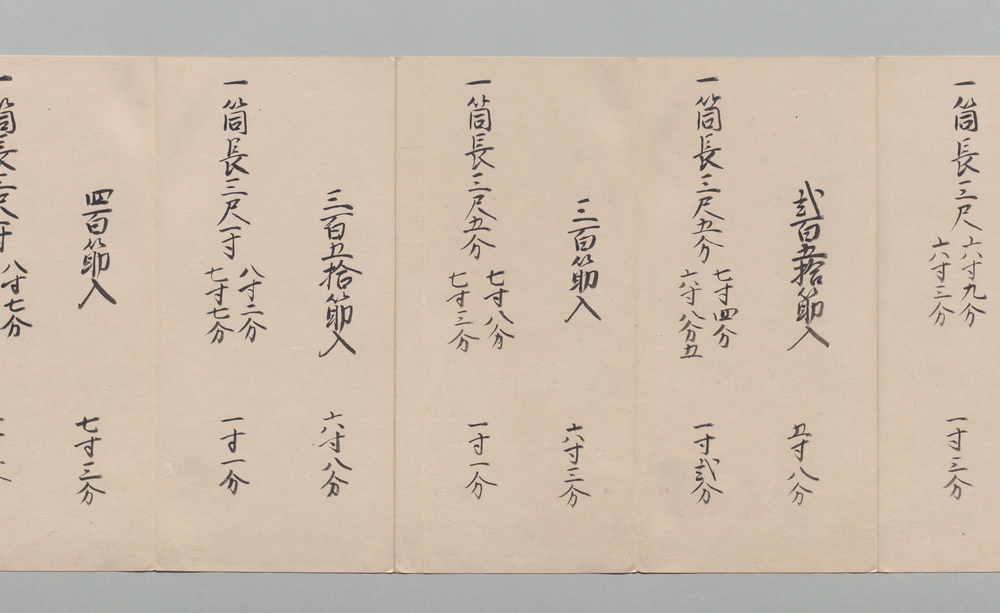 一筒長三尺 六寸九分 六寸三分 一寸三分
弐百五拾節入 五寸八分
一筒長三尺五分 七寸四分 六寸八分五 一寸弐分
三百節入 六寸三分
一筒長三尺五分 七寸八分 七寸三分 一寸一分
三百五拾節入 六寸八分
一筒長三尺一寸 八寸二分 七寸七分 一寸一分
四百節入 七寸三分
一筒長三尺 八寸七分